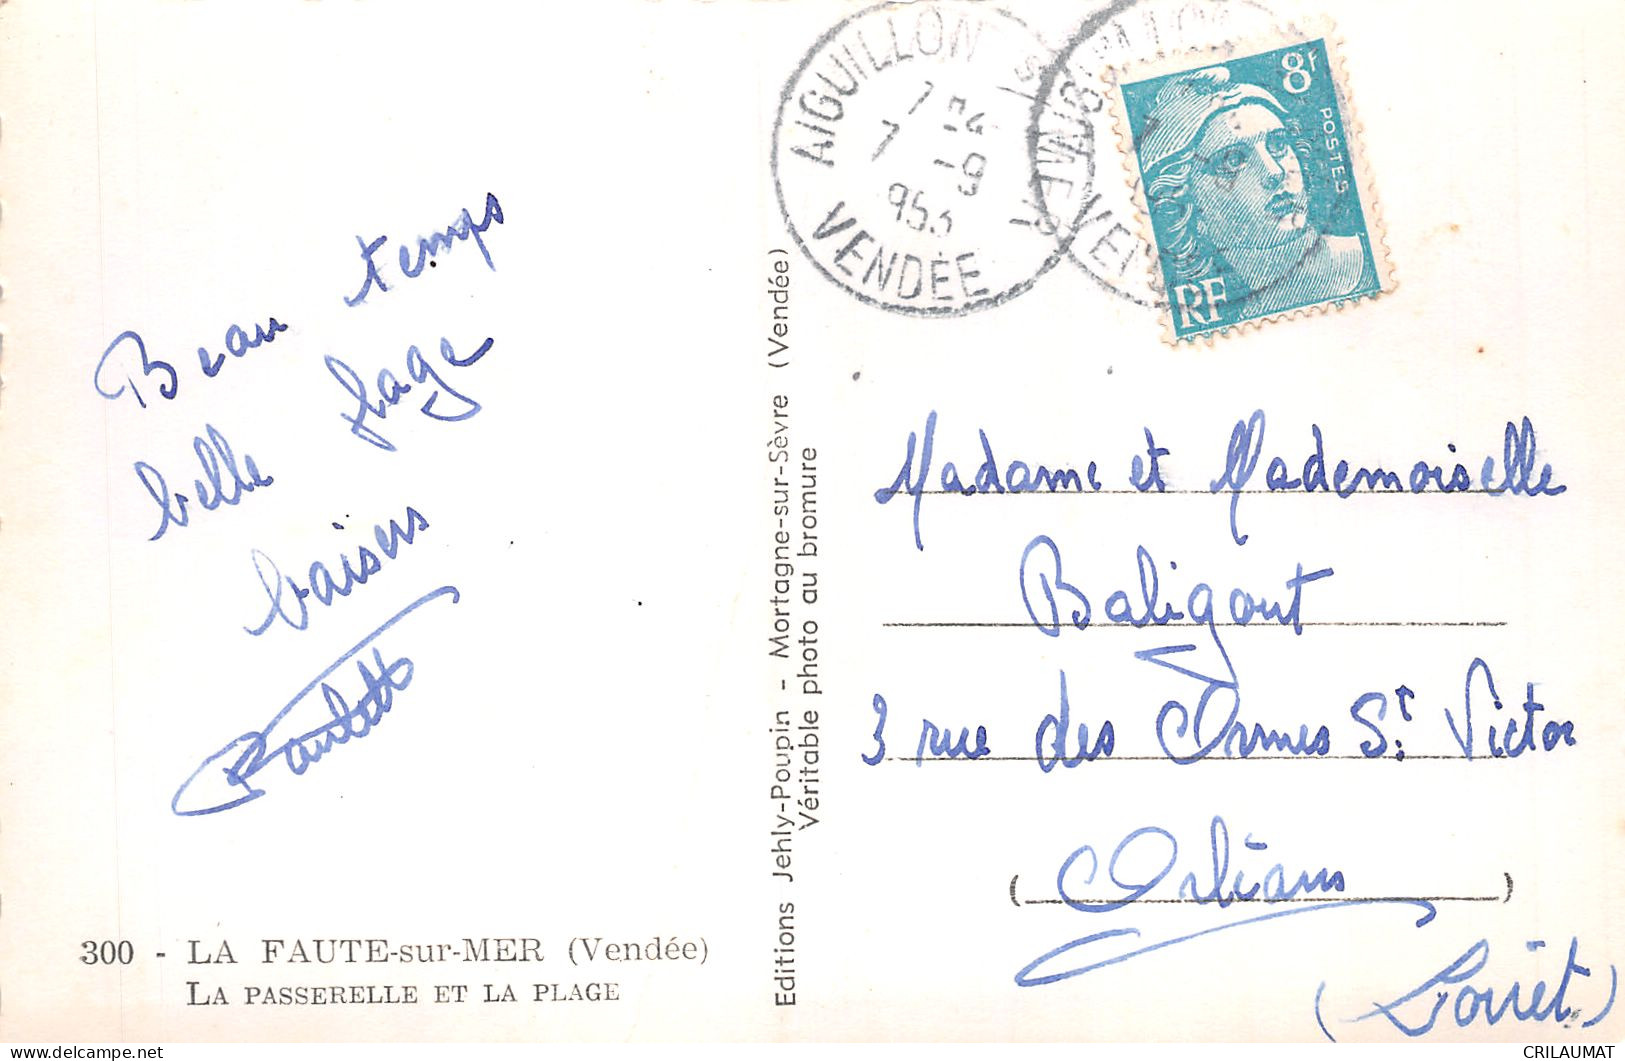 Beau temps
belle plage
baisers
Paulette
300 - LA FAUTE-sur-MER (Vendée)
LA PASSERELLE ET LA PLAGE
Editions Jehly-Poupin - Mortagne-sur-Sèvre (Vendée)
Véritable photo au bromure
AIGUILLON S/MER
7 -9
953
VENDÉE
8F
POSTES
RF
Madame et Mademoiselle
Baligout
3 rue des Ormes St. Victor
(Orléans)
(Loiret)
CRILAUMAT